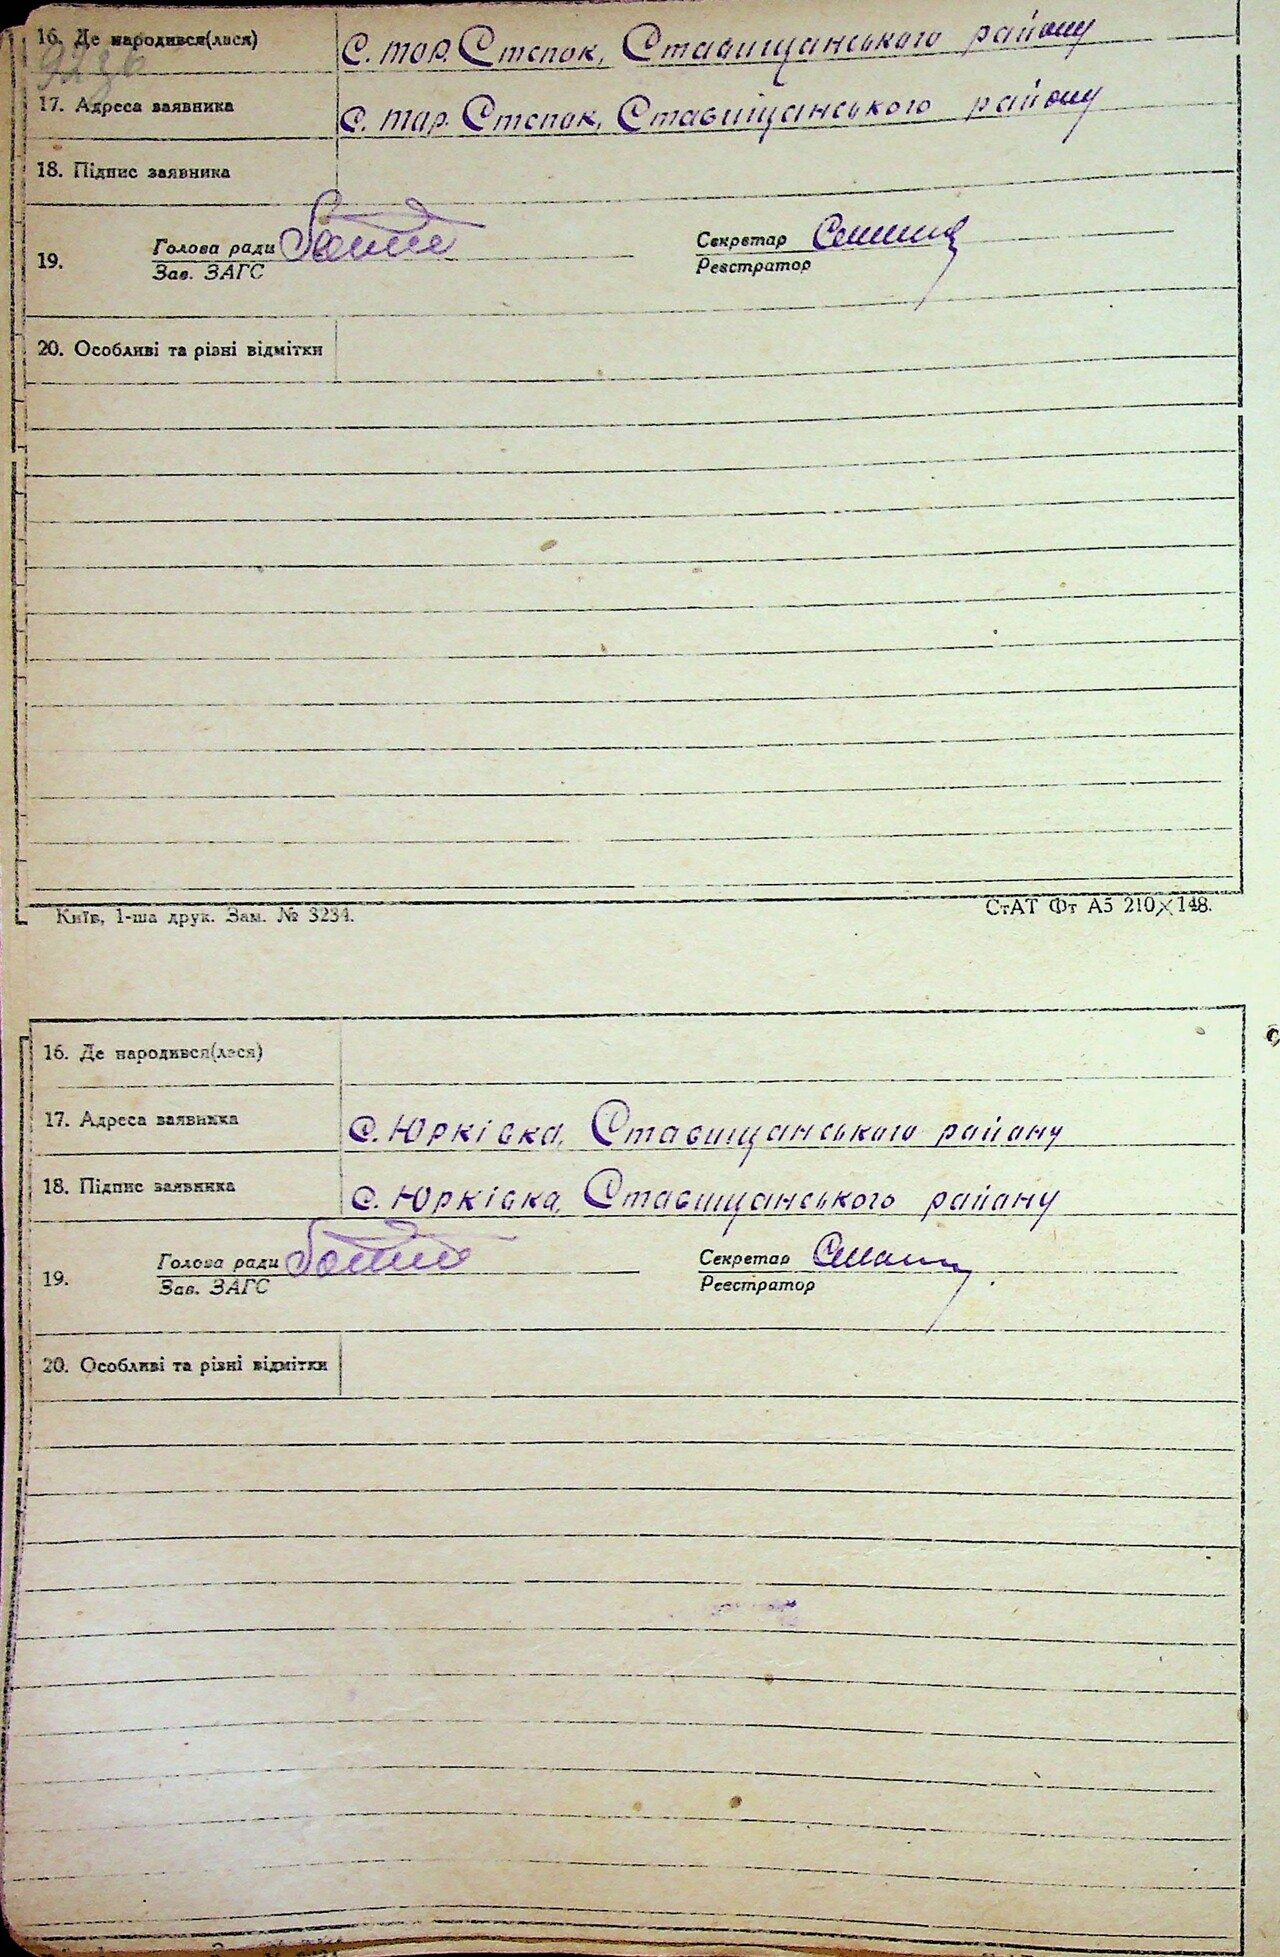 16. Де народився(лася) С. тор. Степок, Ставищанського району
17. Адреса заявника С. тар. Степок, Ставищанського району
18. Підпис заявника
Голова ради Секретар
19.
Зав. ЗАГС Реєстратор
20. Особливі та різні відмітки
Київ, 1-ша друк. Зам. № 3234. СтАТ Фт А5 210×148.
16. Де народився(лася)
17. Адреса заявника с. Юрківка, Ставищанського району
18. Підпис заявника с. Юрківка, Ставищанського району
Голова ради Секретар
19.
Зав. ЗАГС Реєстратор
20. Особливі та різні відмітки